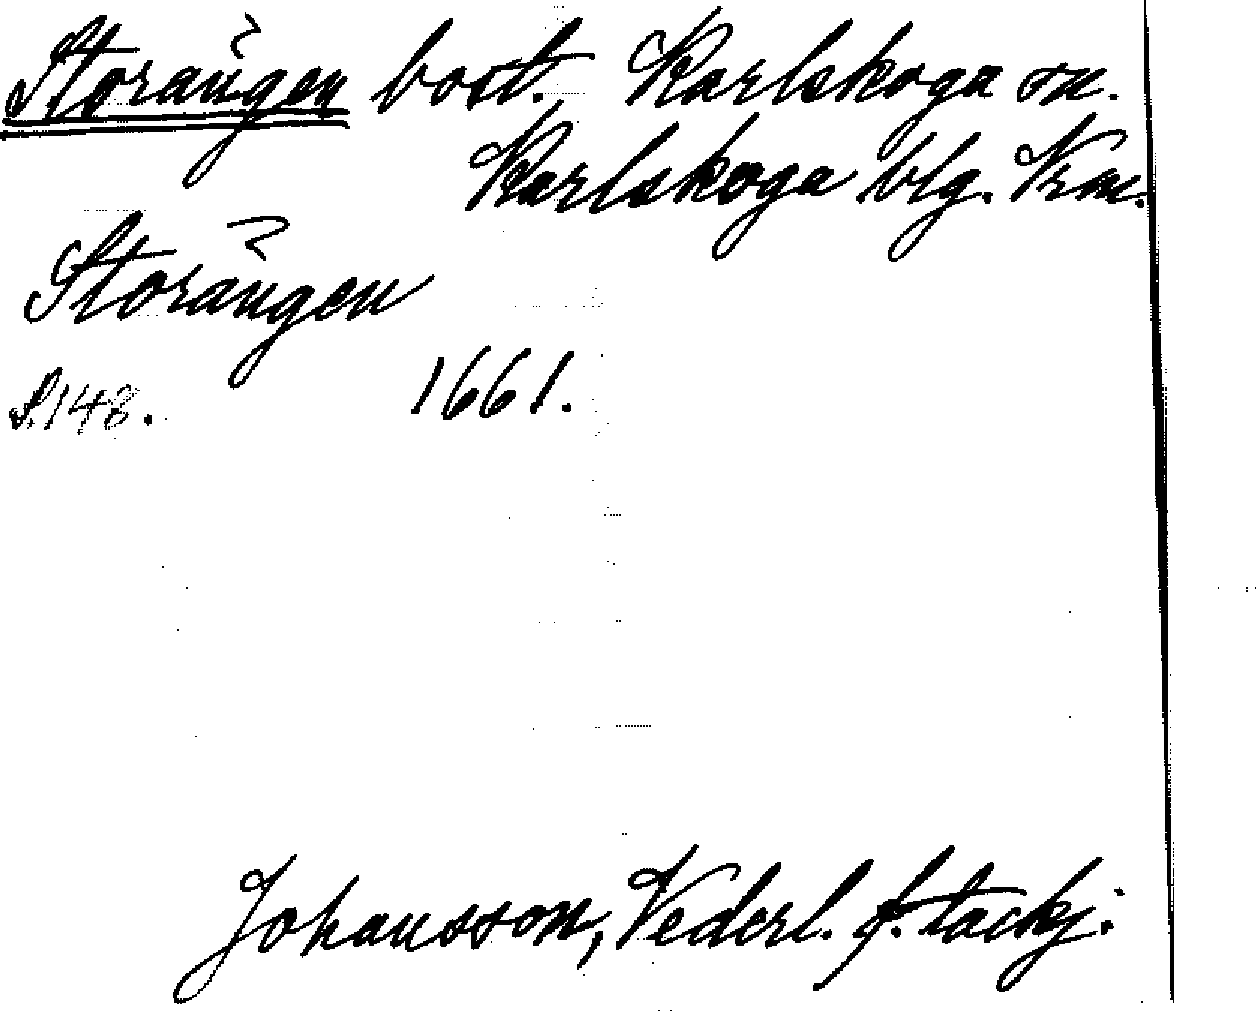 Storängen bost. Karlskoga sn.
Karlskoga blg. Krm.
Storängen
S. 148. 1661.
Johansson, Vederl. f. tackj.